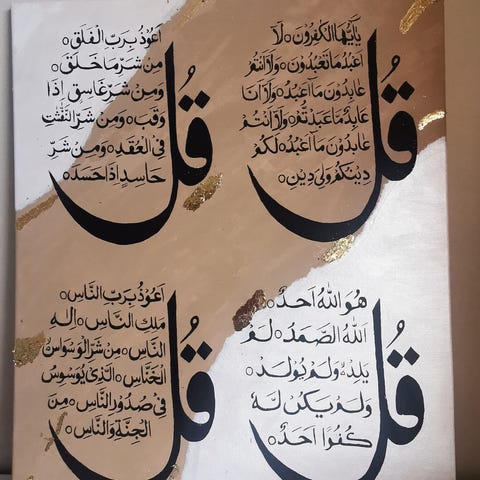 قُلْ
يٰٓاَيُّهَا الْكٰفِرُوْنَ○ لَآ
اَعْبُدُ مَا تَعْبُدُوْنَ○ وَلَآ اَنْتُمْ
عٰبِدُوْنَ مَآ اَعْبُدُ○ وَلَآ اَنَا
عَابِدٌ مَّا عَبَدْتُّمْ○ وَلَآ اَنْتُمْ
عٰبِدُوْنَ مَآ اَعْبُدُ○ لَكُمْ
دِيْنُكُمْ وَلِيَ دِيْنِ○
قُلْ
اَعُوْذُ بِرَبِّ الْفَلَقِ○
مِنْ شَرِّ مَا خَلَقَ○
وَمِنْ شَرِّ غَاسِقٍ اِذَا
وَقَبَ○ وَمِنْ شَرِّ النَّفّٰثٰتِ
فِى الْعُقَدِ○ وَمِنْ شَرِّ
حَاسِدٍ اِذَا حَسَدَ○
قُلْ
هُوَ اللّٰهُ اَحَدٌ○
اَللّٰهُ الصَّمَدُ○ لَمْ
يَلِدْ○ وَلَمْ يُوْلَدْ○
وَلَمْ يَكُنْ لَّهٗ
كُفُوًا اَحَدٌ○
قُلْ
اَعُوْذُ بِرَبِّ النَّاسِ○
مَلِكِ النَّاسِ○ اِلٰهِ
النَّاسِ○ مِنْ شَرِّ الْوَسْوَاسِ
الْخَنَّاسِ○ الَّذِىْ يُوَسْوِسُ
فِىْ صُدُوْرِ النَّاسِ○ مِنَ
الْجِنَّةِ وَالنَّاسِ○